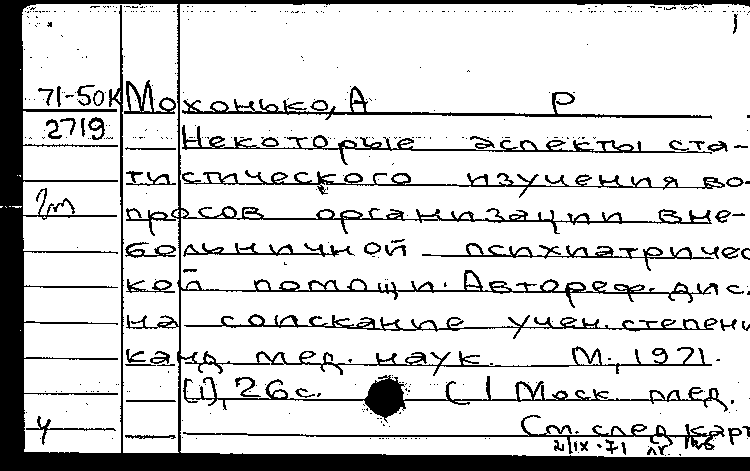 71-50К Мохонько, А Р
2719
Некоторые аспекты ста-
тистического изучения во-
2m просов организации вне-
больничной психиатричес
кой помощи. Автореф. дис.
на соискание учен. степени
канд. мед. наук. М., 1971.
[1], 26 с. ( 1 Моск. мед.
См. след карт
2/IX-71